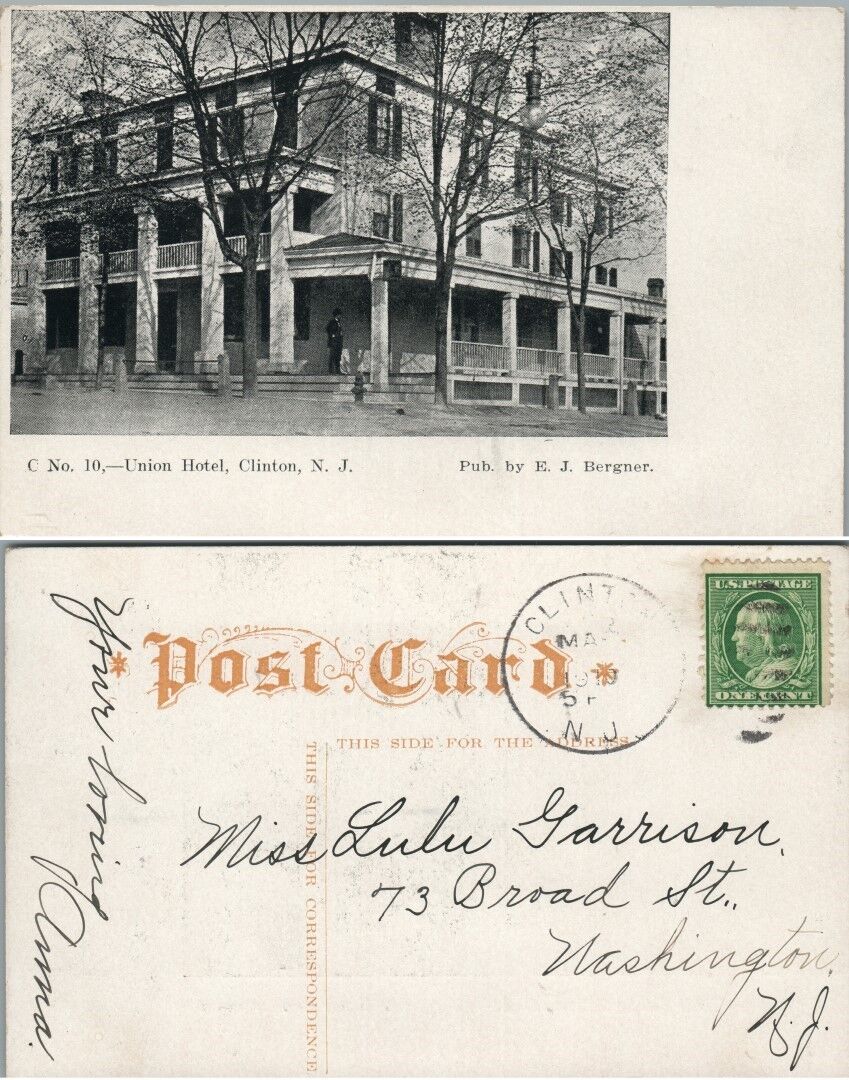 C No. 10,—Union Hotel, Clinton, N. J.
Pub. by E. J. Bergner.
Post Card
THIS SIDE FOR THE ADDRESS
THIS SIDE FOR CORRESPONDENCE
CLINTON
N. J.
U.S. POSTAGE
ONE CENT
Your loving
Anna.
Miss Lulu Garrison,
73 Broad St.,
Washington,
N. J.